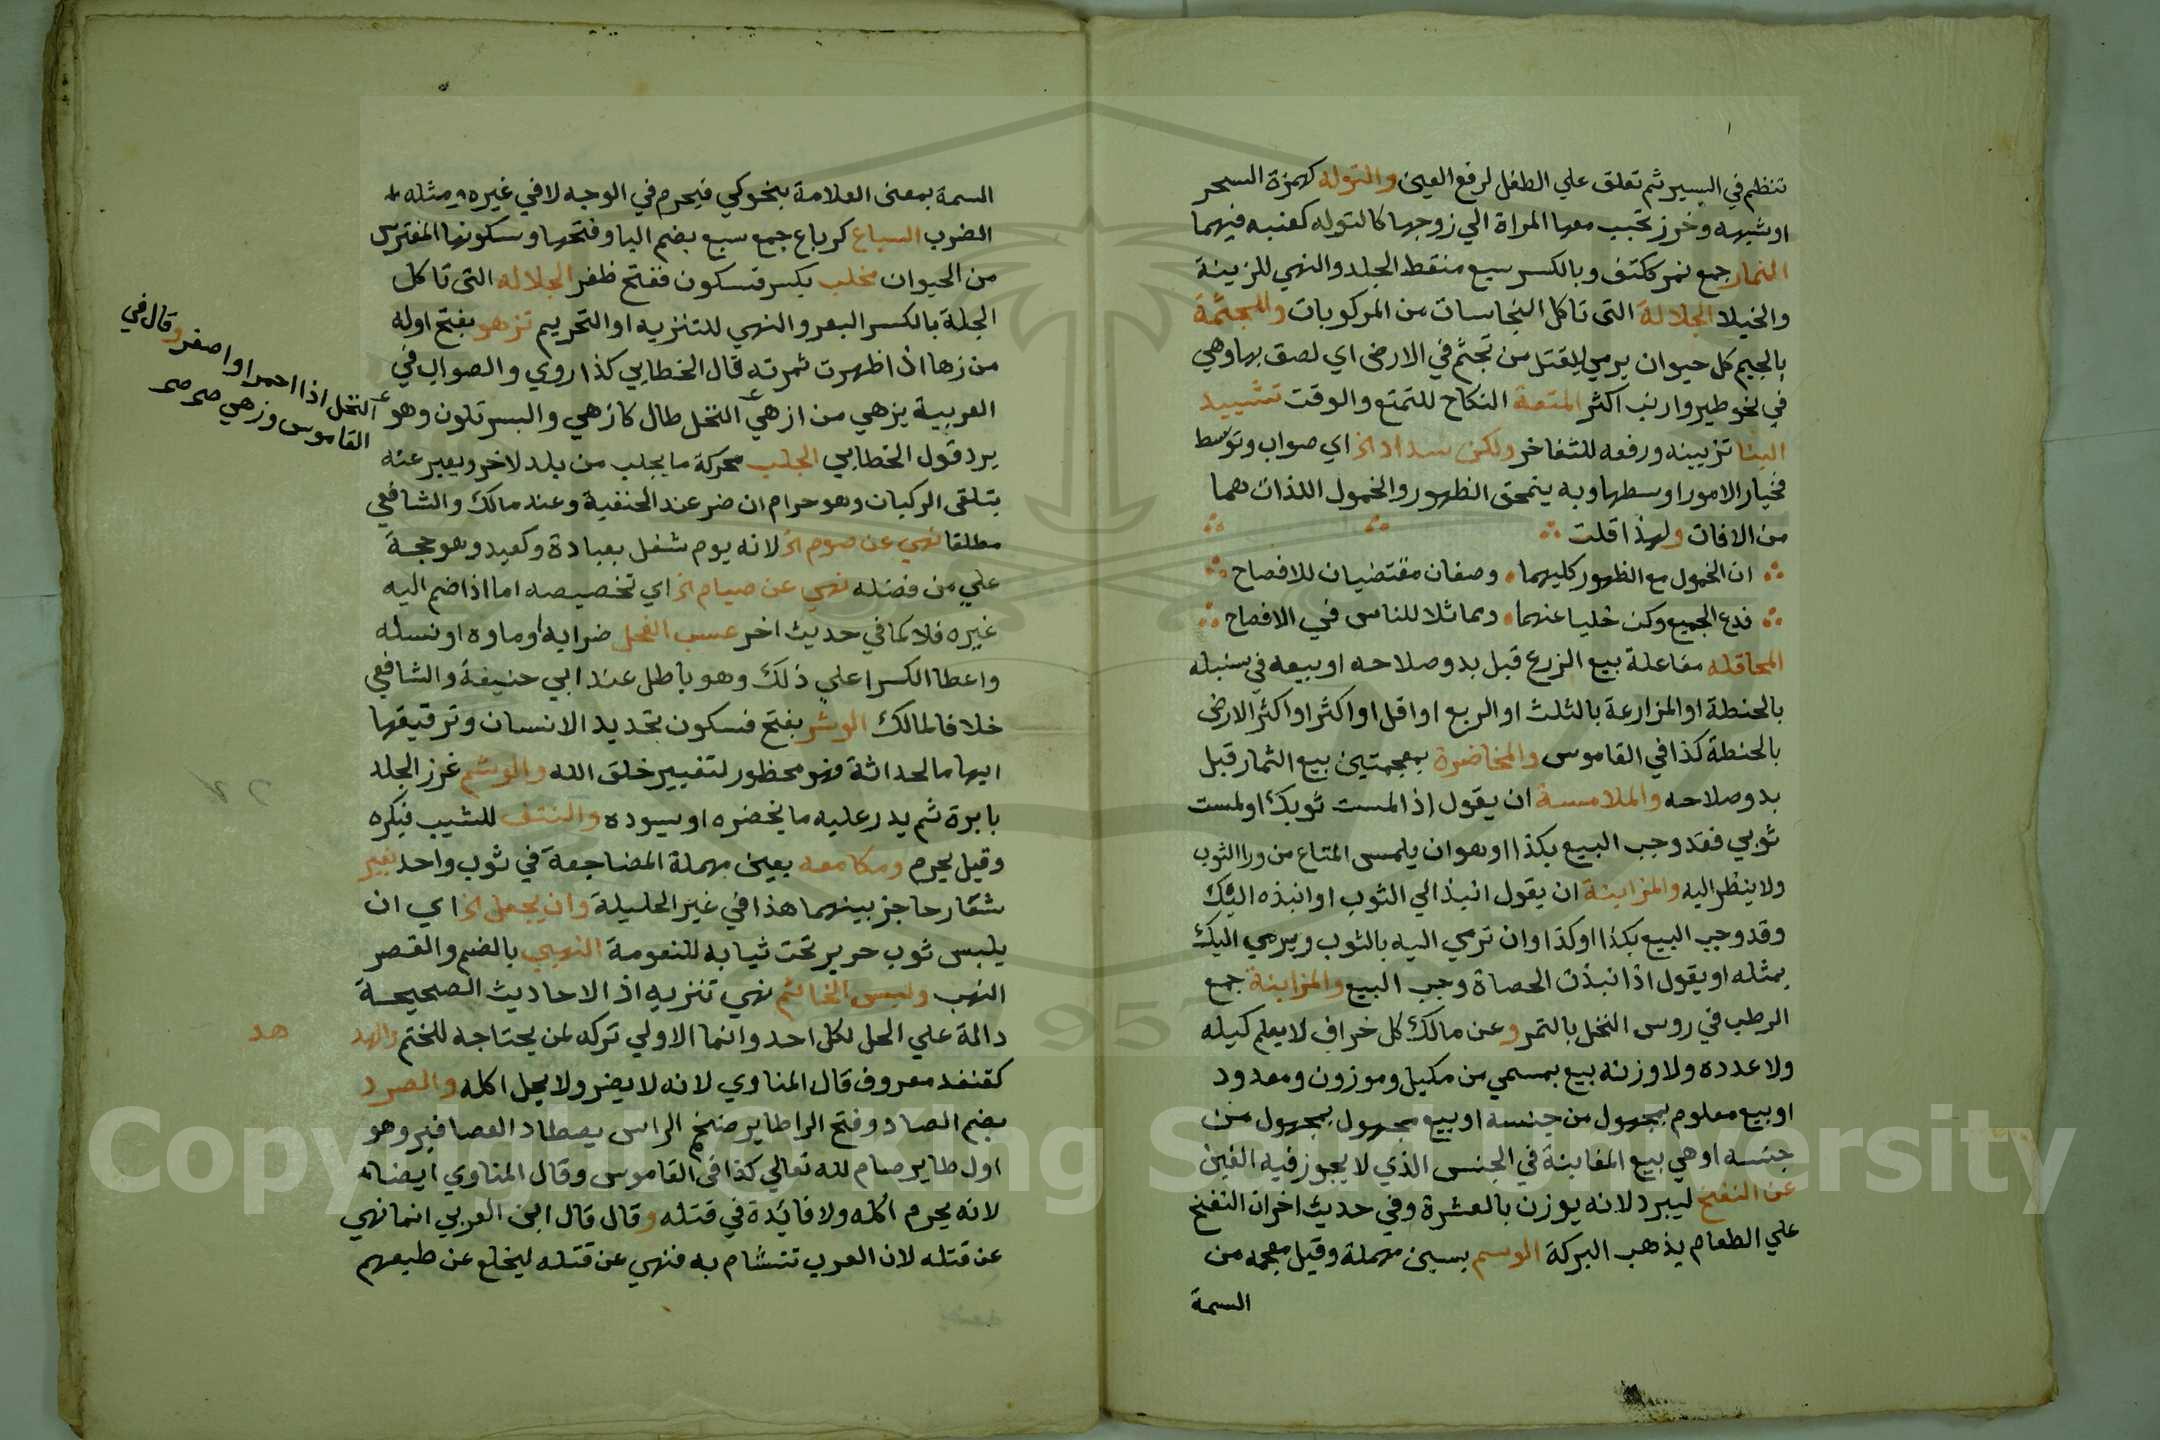 تنظم في السير ثم تعلق علي الطفل لرفع العين والتوله كهمزة السحر
او شبهه وخرز تحبب معها المراة الي زوجها كالتوله كعنبه فيهما
النمار جمع نمر ككتف وبالكسر سبع منقط الجلد والنهي للزينة
والخيلا الجلالة التى تاكل النجاسات من المركوبات والمجثمة
بالجيم كل حيوان يرمي ليقتل من تجثم في الارض اي لصق بها وهي
في نحو طير وارنب اكثر المتعة النكاح للتمتع والوقت تشييد
البنا تزيينه ورفعه للتفاخر ولكن سداد الخ اي صواب وتوسط
فخيار الامور اوسطها وبه ينمحق الظهور والخمول اللذان هما
من الافات ولهذا قلت
ان الخمول مع الظهور كليهما وصفان مقتضيان للافصاح
فدع الجميع وكن خليا عنهما ومماثلا للناس في الافصاح
المحاقله مفاعلة بيع الزرع قبل بدو صلاحه او بيعه في سنبله
بالحنطة او المزارعة بالثلث او الربع او اقل او اكثر او اكثر الارض
بالحنطة كذا في القاموس والمخاضرة بمعجمتين بيع الثمار قبل
بدو صلاحه والملامسة ان يقول اذا لمست ثوبك او لمست
ثوبي فقد وجب البيع بكذا او هو ان يلمس المتاع من ورا الثوب
ولا ينظر اليه والمزابنة ان يقول انبذ الي الثوب او انبذه اليك
وقد وجب البيع بكذا او كذا وان ترمي اليه بالثوب ويرمي اليك
بمثله او يقول اذا نبذت الحصاة وجب البيع والمزابنة جمع
الرطب في روس النخل بالتمر وعن مالك كل خراف لا يعلم كيله
ولا عدده ولا وزنه بيع بمسمي من مكيل وموزون ومعدود
او بيع معلوم بمجهول من جنسه او بيع مجهول بمجهول من
جنسه او هي بيع المغابنة في الجنس الذي لا يجوز فيه الغبن
عن النفخ ليبرد لانه يوزن بالعشرة وفي حديث اخر ان النفخ
علي الطعام يذهب البركة الوسم بسين مهملة وقيل معجمه من
السمة
السمة بمعنى العلامة بنحو كي فيحرم في الوجه لا في غيره ومثله
الضرب السباع كرباع جمع سبع بضم اليا وفتحها وسكونها المفترس
من الحيوان مخلب بكسر فسكون ففتح ظفر الجلاله التى تاكل
الجلة بالكسر البعر والنهي للتنزيه او التحريم تزهو بفتح اوله
من زها اذا ظهرت ثمرته قال الخطابي كذا روي والصواب في
العربية يزهي من ازهي النخل طال كازهي والبسر تلون وهو
يرد قول الخطابي الجلب محركة ما يجلب من بلد لاخر ويعبر عنه
بتلقى الركبان وهو حرام ان ضر عند الحنفية وعند مالك والشافعي
مطلقا نهي عن صوم الخ لانه يوم شغل بعبادة وكعيد وهو حجة
علي من فضله نهي عن صيام الخ اي تخصيصه اما اذا ضم اليه
غيره فلا كما في حديث اخر عسب الفحل ضرابه او ماوه او نسله
واعطا الكسرا علي ذلك وهو باطل عند ابي حنيفة والشافعي
خلافا لمالك الوشر بفتح فسكون تحديد الانسان وترقيقها
ايهاما لحداثة فهو محظور لتغيير خلق الله والوشم غرز الجلد
بابرة ثم يدر عليه ما يخضره او يسوده والنتف للشيب فيكره
وقيل يحرم ومكامعه بعين مهملة المضاجعة في ثوب واحد بغير
شعار حاجز بينهما هذا في غير الحليلة وان يجعل الخ اي ان
يلبس ثوب حرير تحت ثيابه للنعومة النهبي بالضم والقصر
النهب ولبس الخاتم نهي تنزيه اذ الاحاديث الصحيحة
دالة علي الحل لكل احد وانما الاولي تركه لمن يحتاجه للختم والهد
هد
كقنفد معروف قال المناوي لانه لا يضر ولا يحل اكله والصرد
بضم الصاد وفتح الرا طاير ضخم الراس يصطاد العصافير وهو
اول طاير صام لله تعالي كذا في القاموس وقال المناوي ايضا
لانه يحرم اكله ولا فائدة في قتله وقال قال ابن العربي انما نهي
عن قتله لان العرب تتشام به فنهي عن قتله ليخلع عن طبعهم
وقال في
النخل اذا احمر او اصفر
القاموس وزهي صح صح
Copyright © King Saud University
1957